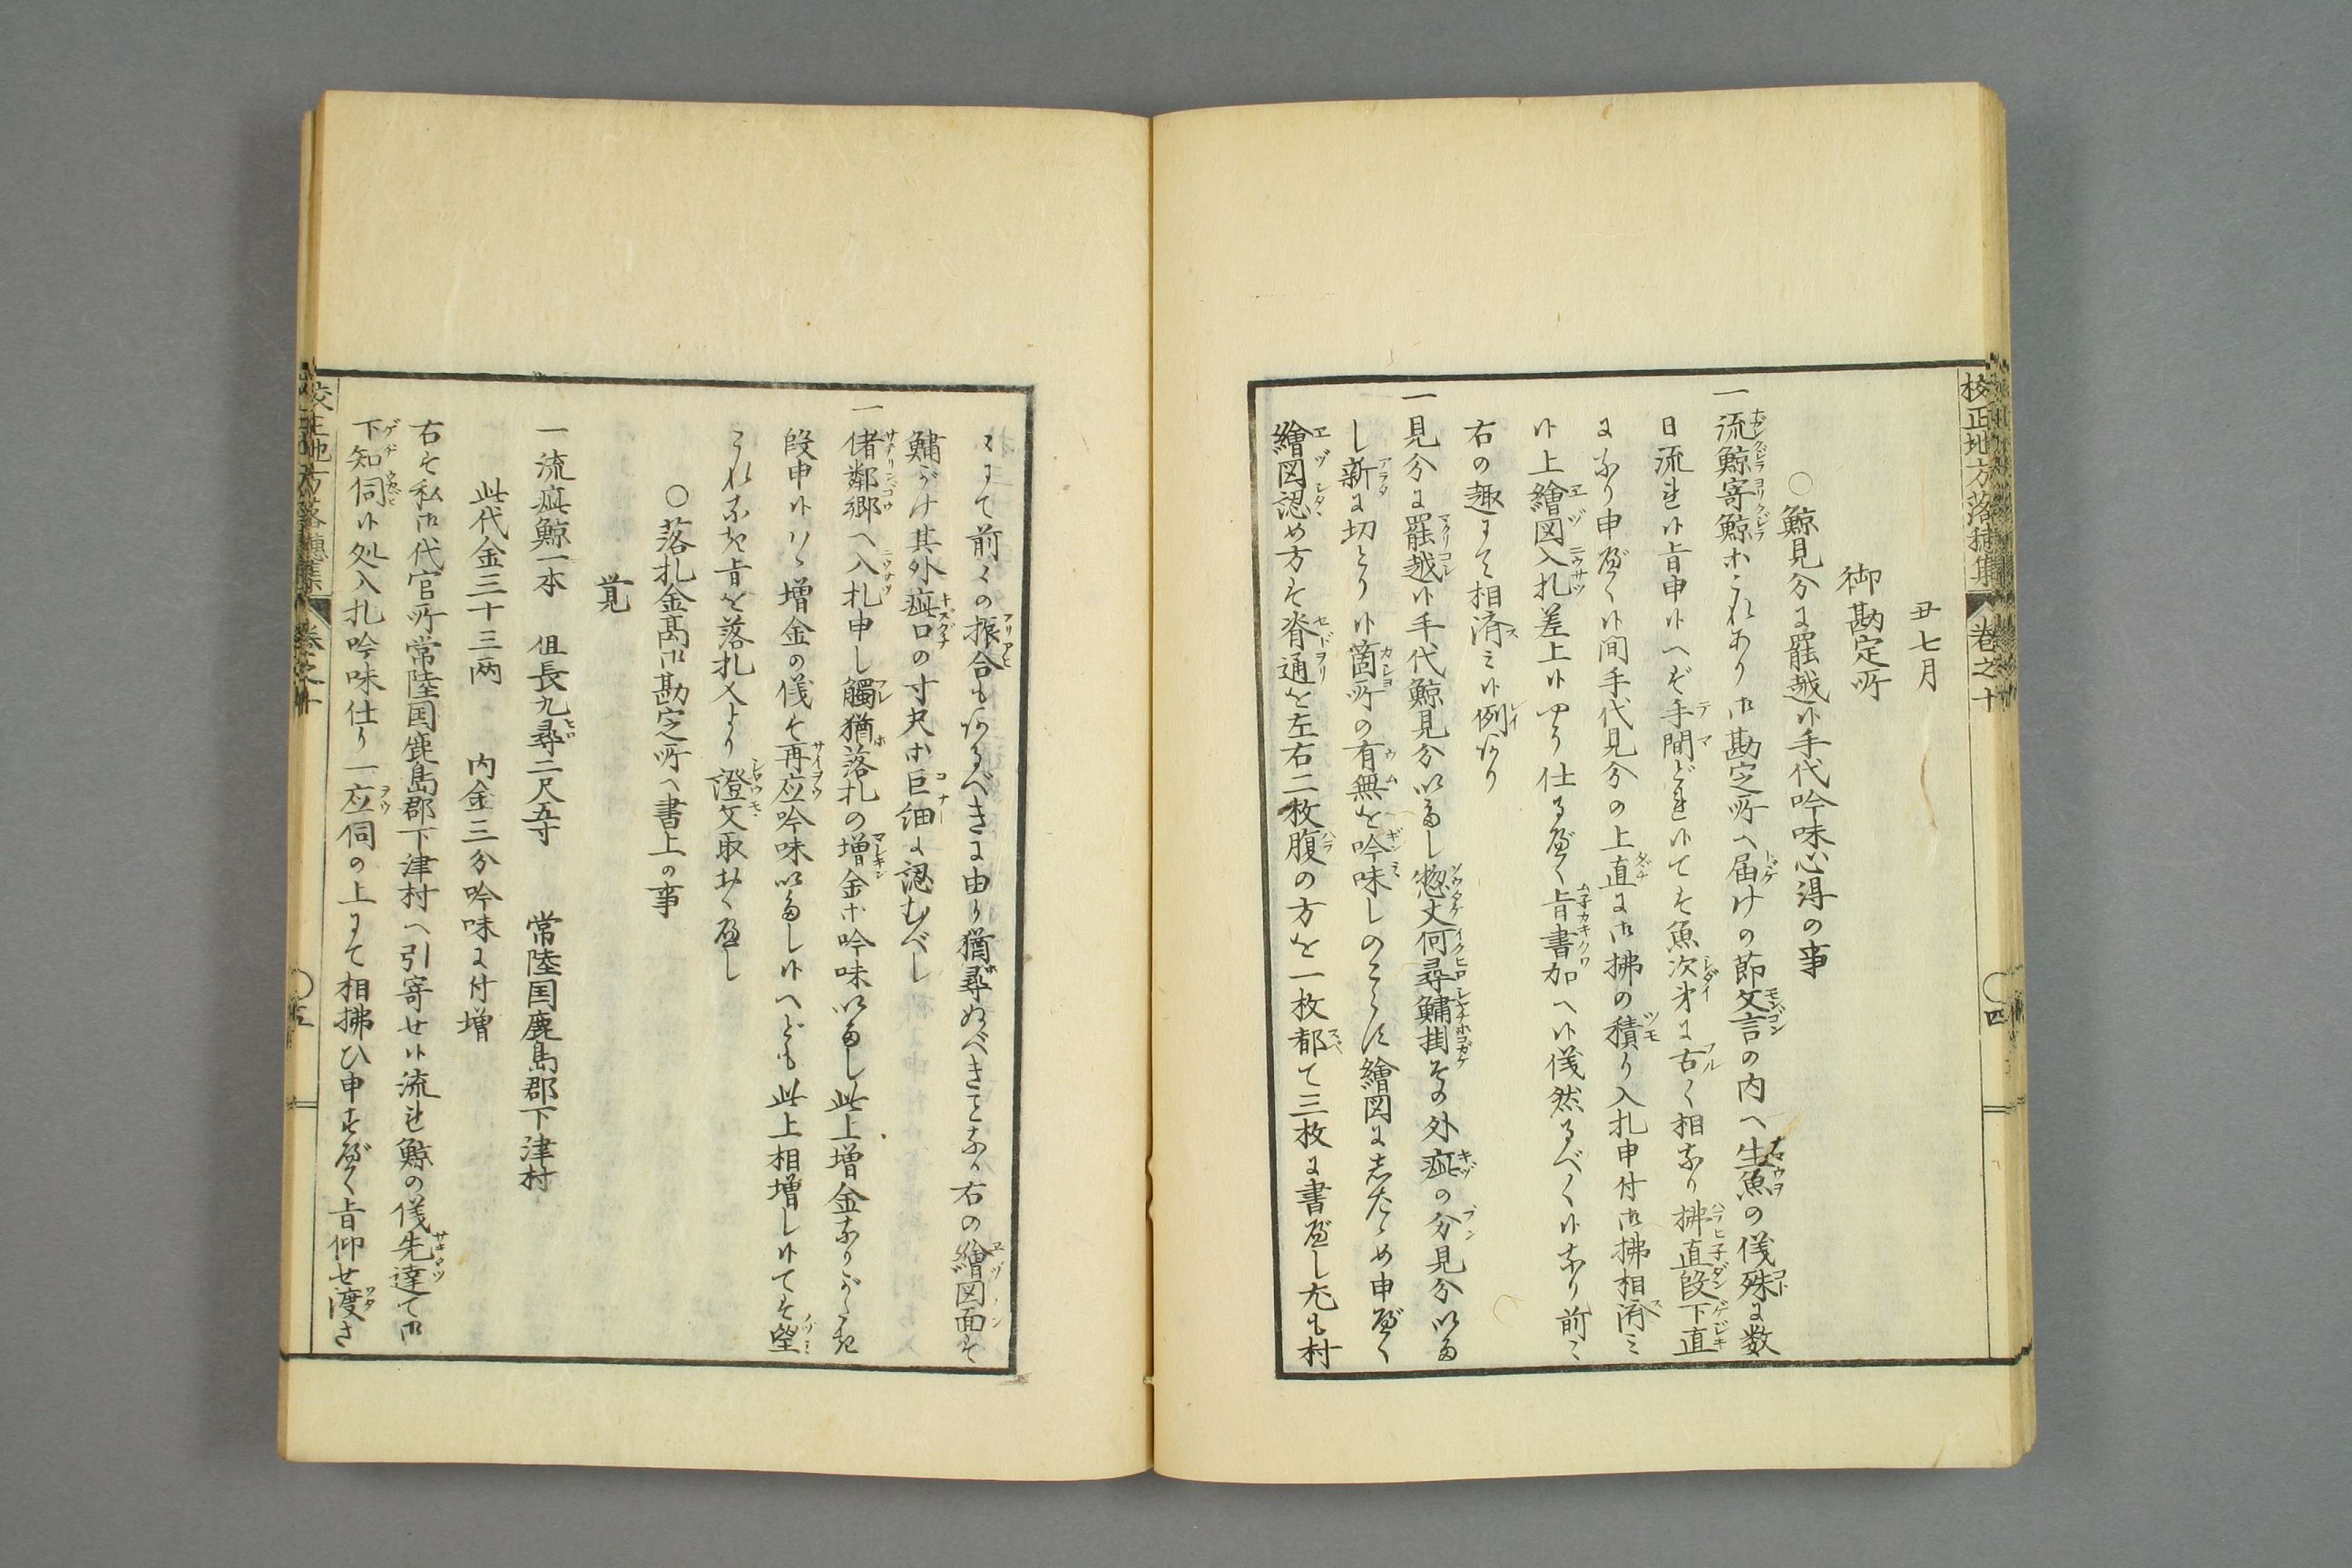 校正地方落穂集 巻之十 四
丑七月
御勘定所
○鯨見分に罷越候手代吟味心得の事
一流鯨寄鯨等これあり御勘定所へ届けの節文言の内へ生魚の儀殊に数
日流れ候旨申候へば手間どれ候ては魚次第に古く相成り拂直段下直
に成り申べく候間手代見分の上直に御拂の積り入札申付御拂相済ミ
候上繪図入札差上候やう仕るべく旨書加へ候儀然るべく候なり前ミ
右の趣にて相済ミ候例あり
一見分に罷越候手代鯨見分いたし惣丈何尋鱐掛その外疵の分見分いた
し新に切とり候箇所の有無を吟味しのこらず繪図にしたゝめ申べく
繪図認め方は脊通を左右二枚腹の方を一枚都て三枚に書べし尤も村
ミにて前々の振合もあるべきに由り猶尋ぬべきことなり右の繪図面は
鱐がけ其外疵口の寸尺等巨細に認むべし
一偖鄰郷へ入札申し觸猶落札の増金等吟味いたし此上増金なりがたき
段申候はゞ増金の儀は再応吟味いたし候へども此上相増し候ては望
これなき旨を落札人より證文取おくべし
○落札金高御勘定所へ書上の事
覚
一流疵鯨一本 但長九尋二尺五寸 常陸国鹿島郡下津村
此代金三十三両 内金三分吟味に付増
右は私御代官所常陸国鹿島郡下津村へ引寄せ候流れ鯨の儀先達て御
下知伺候処入札吟味仕り一応伺の上にて相拂ひ申すべく旨仰せ渡さ
校正地方落穂集 巻之十